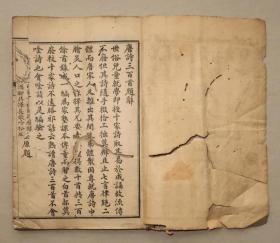 唐詩三百首題辭
世俗兒童就學即授千家詩取其易於成誦故流傳
不廢但其詩隨手掇拾工拙莫辨且止七言律絕二
體而唐宋人又雜出其間殊乖體製因專就唐詩中
膾炙人口之作擇其尤要者每體得數十首共三百
餘首錄成一編為家塾課本俾童而習之白首亦莫
能廢較千家詩不遠勝耶諺云熟讀唐詩三百首不會
吟詩也會吟請以是編驗之
原題